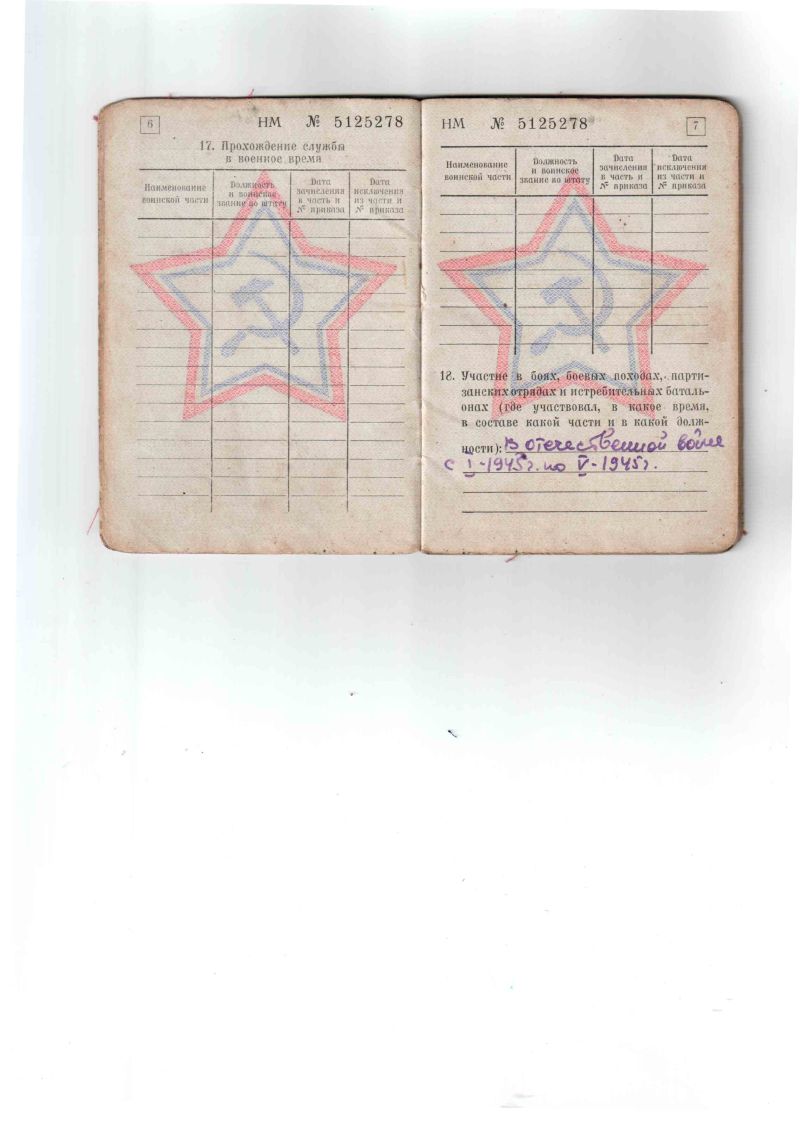 6
НМ № 5125278
17. Прохождение службы
в военное время
Наименование
воинской части
Должность
и воинское
звание по штату
Дата
зачисления
в часть и
№ приказа
Дата
исключения
из части и
№ приказа
НМ № 5125278
7
Наименование
воинской части
Должность
и воинское
звание по штату
Дата
зачисления
в часть и
№ приказа
Дата
исключения
из части и
№ приказа
18. Участие в боях, боевых походах, парти-
занских отрядах и истребительных баталь-
онах (где участвовал, в какое время,
в составе какой части и в какой долж-
ности): В отечественной войне
с I-1945г. по V-1945г.